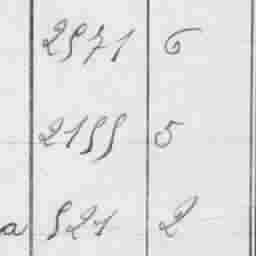 2871 6
2188 5
a 821 2